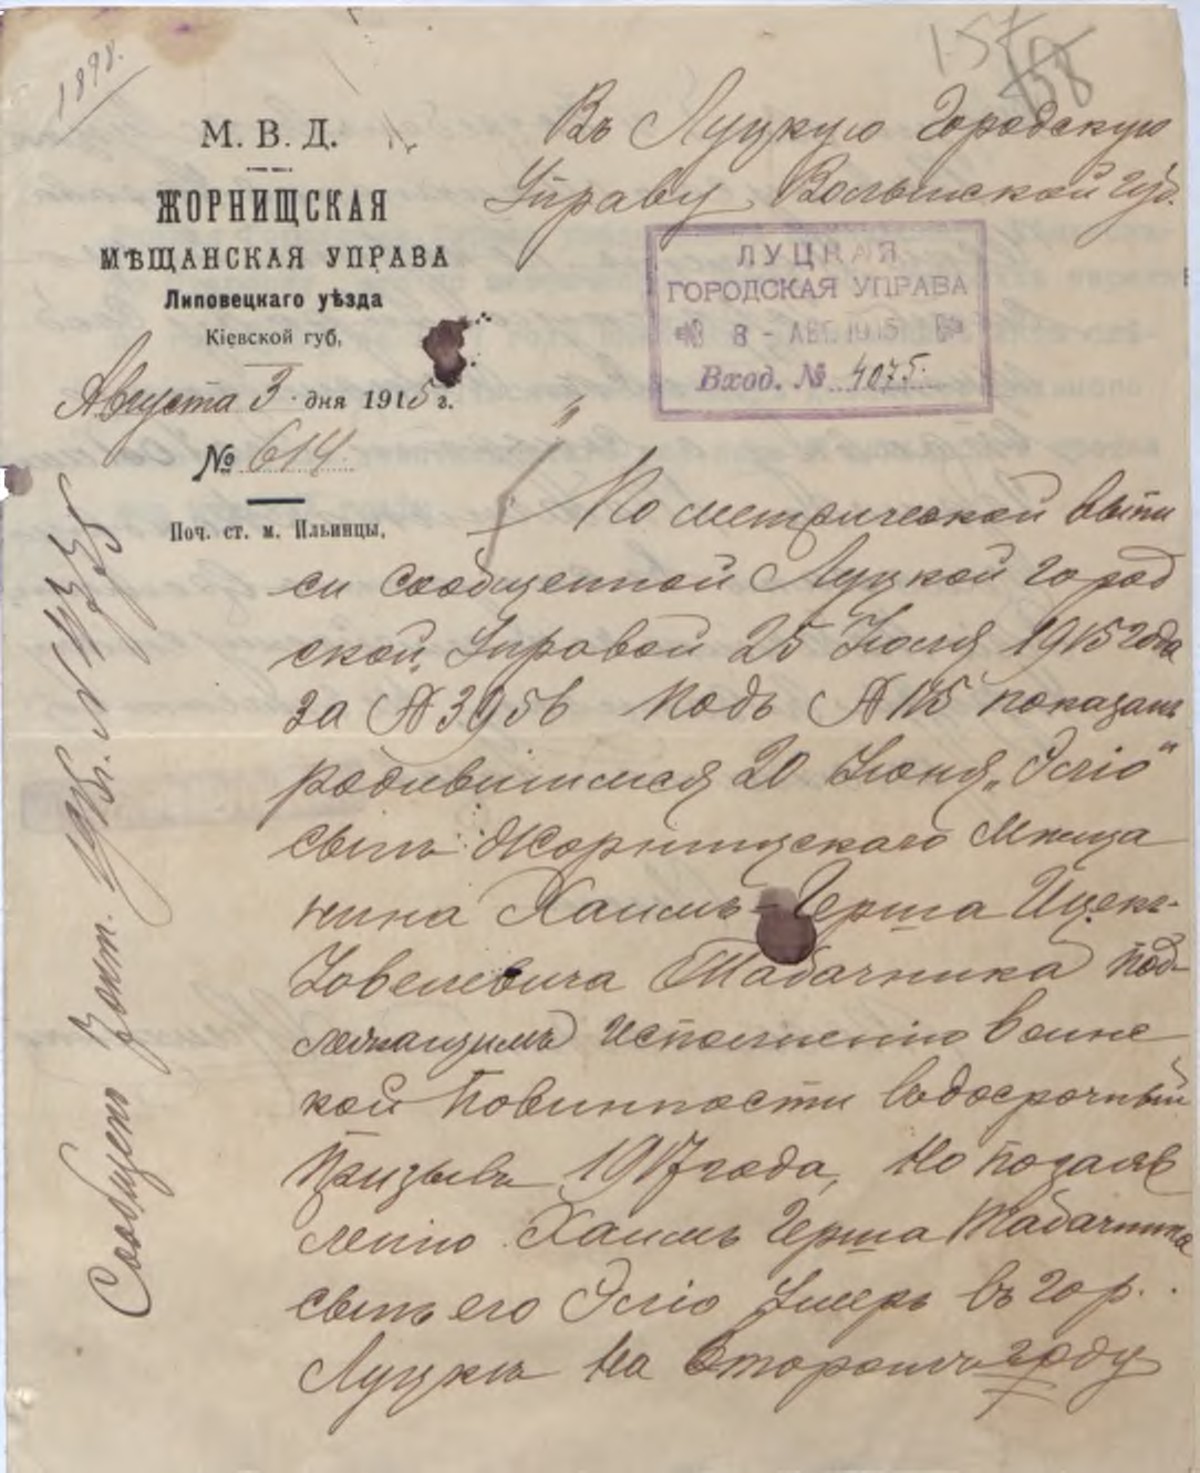 1898.
157
158
М. В. Д.
ЖОРНИЩСКАЯ
МѢЩАНСКАЯ УПРАВА
Липовецкаго уѣзда
Кіевской губ,
Августа 3 дня 1915 г.
№ 614.
Поч. ст. м. Ильинцы.
Въ Луцкую Городскую
Управу, Волынской губ.
ЛУЦКАЯ
ГОРОДСКАЯ УПРАВА
8 - АВГ. 1915
Вход. № 4075.
По метрической выпи
си сообщенной Луцкой город
ской Управой 25 Іюля 1915 года
за № 3956 подъ № 115 показанъ
родившимся 20 Іюня „Эліо"
сынъ Жорнищскаго Мѣща
нина Хаимъ-Герша Ицекъ-
Іовелевича Табачника под-
лежащимъ исполненію воинс
кой повинности въ досрочный
призывъ 1917 года, но по заяв
ленію Хаимъ Герша Табачника
сынъ его Эліо умеръ въ гор.
Луцкѣ на второмъ году
Сообщен 1915 г. №